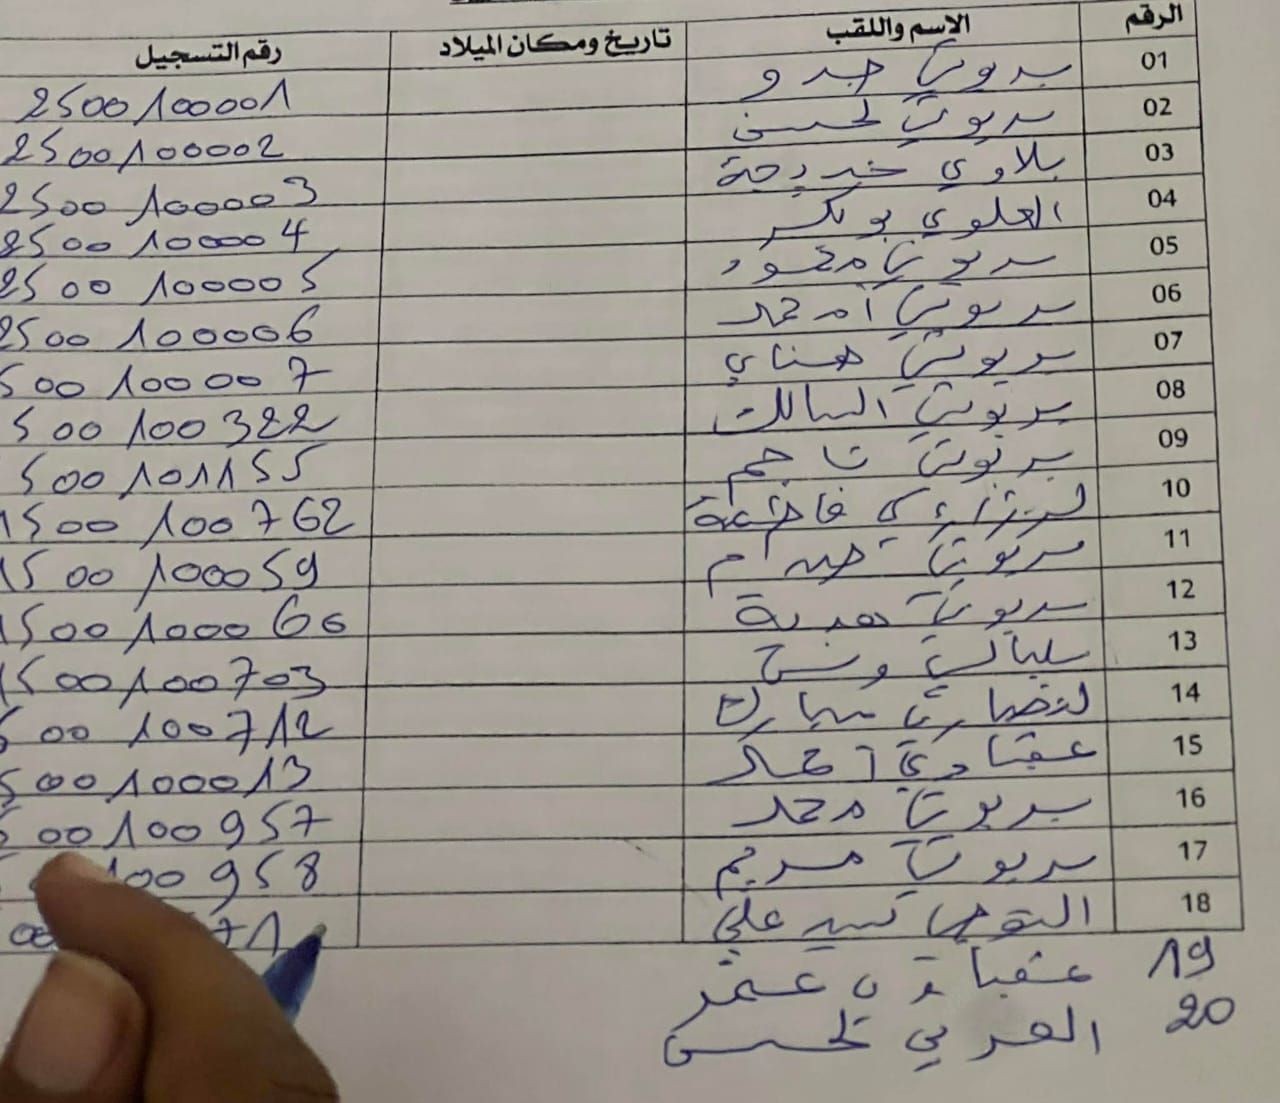 الرقم الاسم واللقب تاريخ ومكان الميلاد رقم التسجيل
01 بربوشي جدو 2500100001
02 بربوشي لحسن 2500100002
03 بلاوي خديجة 2500100003
04 العلوي بوبكر 2500100004
05 بربوشي محمود 2500100005
06 بربوشي امحمد 2500100006
07 بربوشي هناي 500100007
08 بربوشي السالك 500100322
09 بربوشي ناجم 500101155
10 فاطمة 1500100762
11 بربوشي 1500100059
12 بربوشي هدية 1500100060
13 1500100703
14 مبارك 500100712
15 عقباوي احمد 500100013
16 بربوشي محمد 500100957
17 بربوشي مريم 100958
18 علي 71
19 عمر
20 العربي لحسن